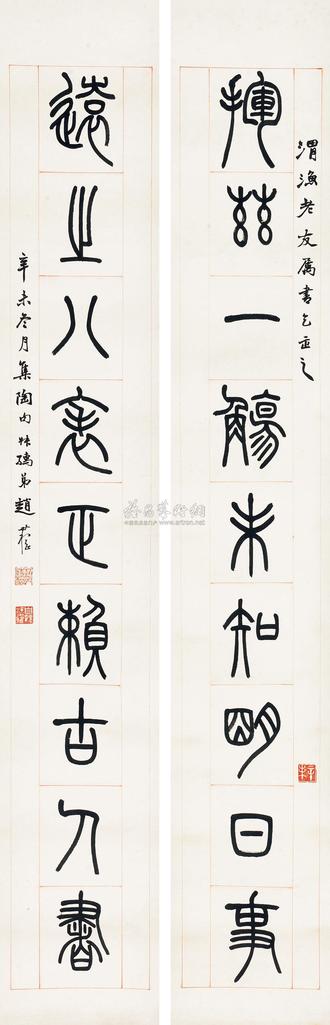 渭漁老友屬書乞正之
揮茲一觴未知明日事
遠之八表正賴古人書
辛未冬月集陶句叔孺弟趙時棡
雅昌藝術網
www.artron.net